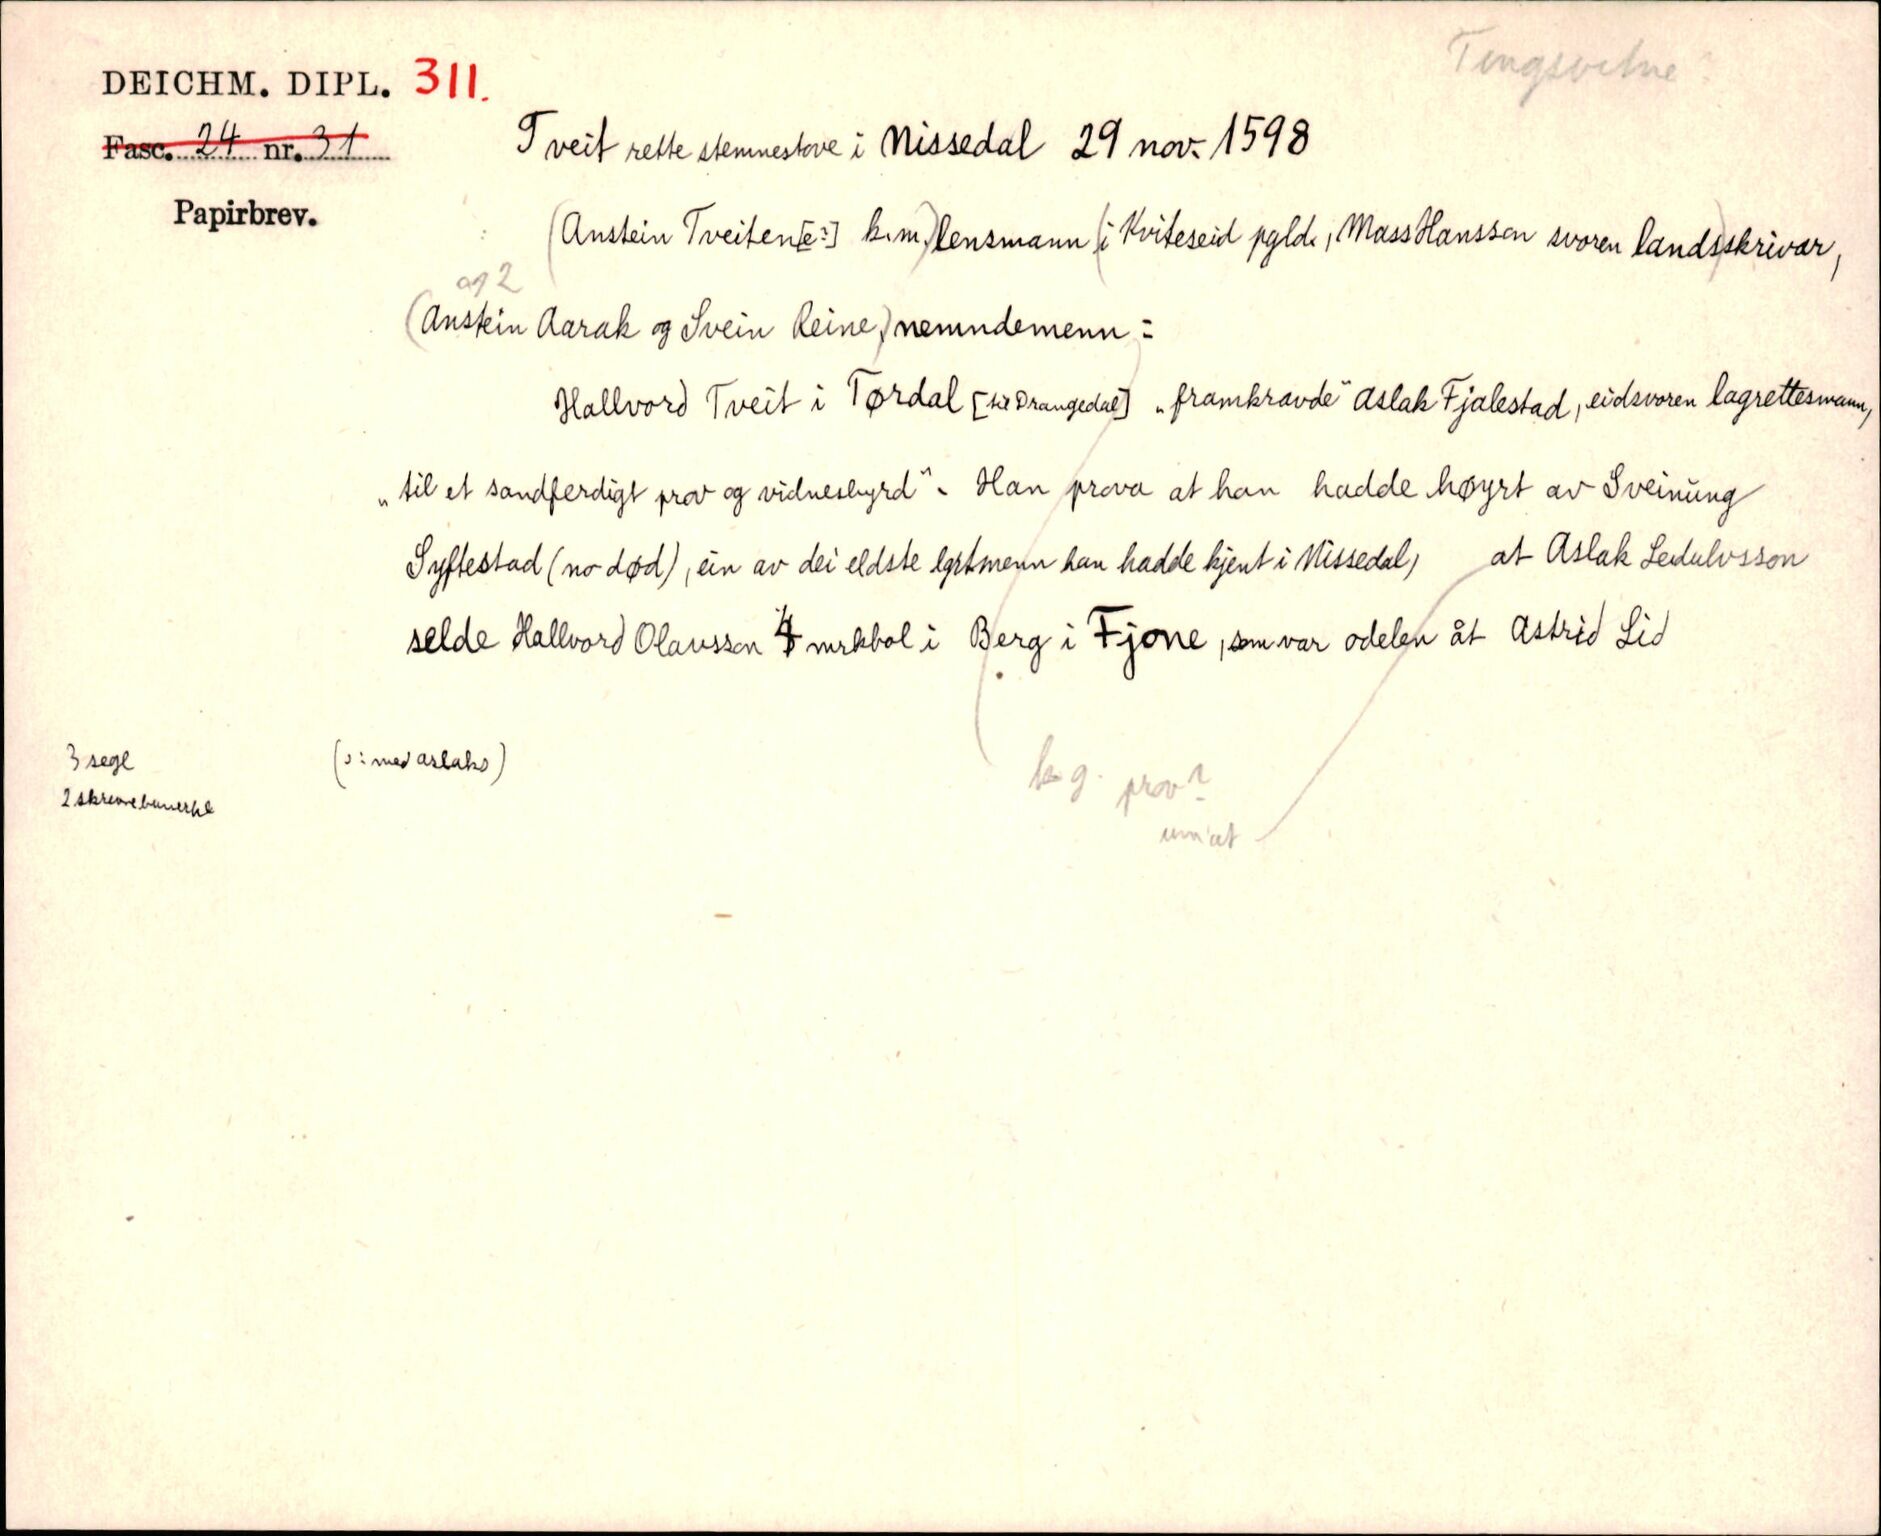 Tingsvitne?
DEICHM. DIPL. 311.
Fasc. 24 nr. 31
Papirbrev.
Tveit rette stemnestove i Nissedal 29 nov. 1598
(Anstein Tveiten[e?] k.m.) lensmann (i Kviteseid pgld., Mass Hansson svoren lands)skrivar,
og 2
(Anstein Aarak og Svein Reine) nemndemenn:
Hallvord Tveit i Tørdal [til Drangedal] „framkravde" Aslak Fjalestad, eidsvoren lagrettesmann,
„til et sandferdigt prov og vidnesbyrd". Han prova at han hadde høyrt av Sveinung
Syftestad (no død), ein av dei eldste lgrtmenn han hadde kjent i Nissedal, at Aslak Ledulvsson
selde Hallvord Olavsson 4 mrkbol i Berg i Fjone, som var odelen åt Astrid Lid
3 segl
(ɔ: med Aslaks)
2 skrevne bumerke
k g. prov?
um at